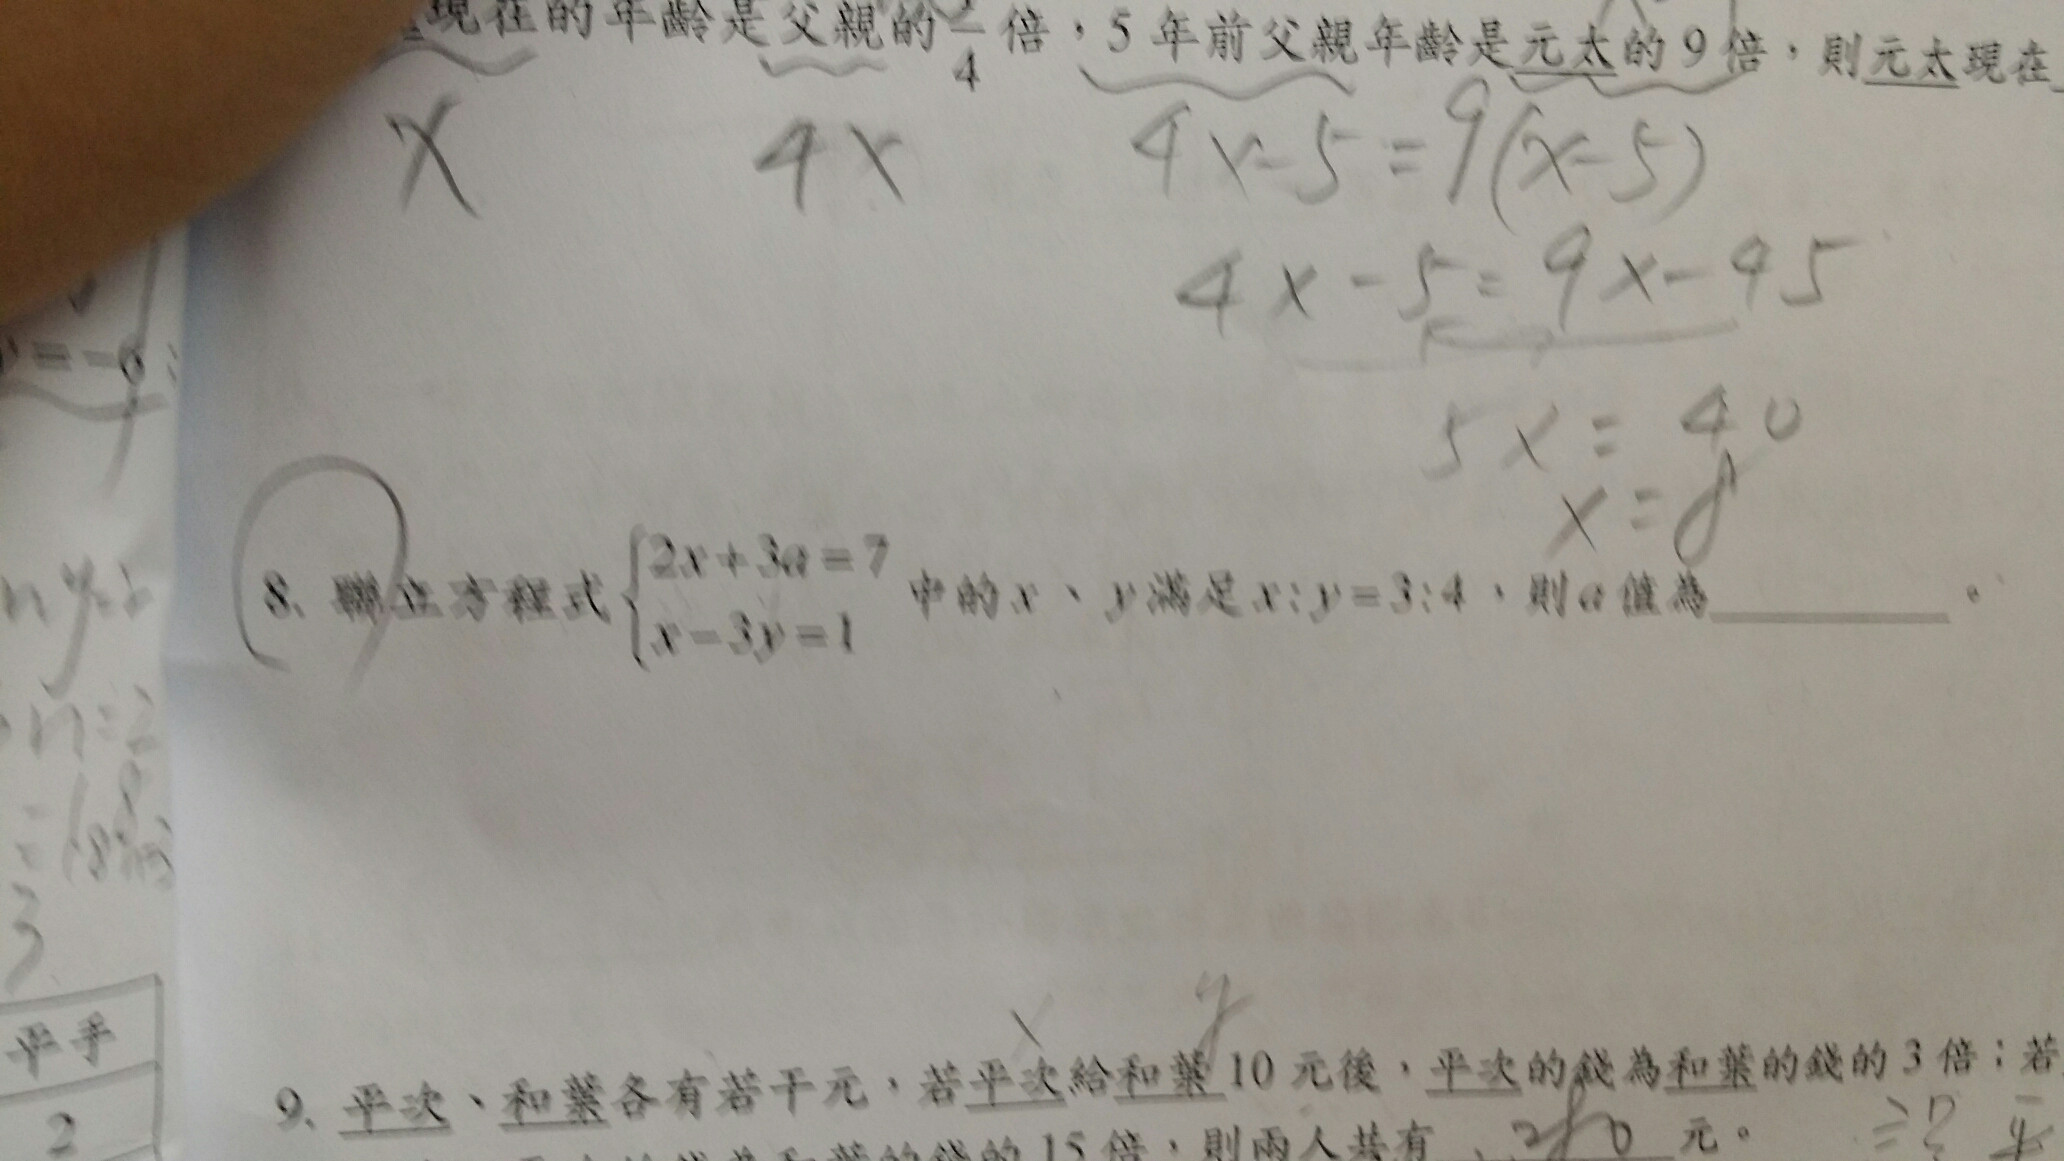 現在的年齡是父親的 1/4 倍，5 年前父親年齡是元太的 9 倍，則元太現在
x 4x 4x-5=9(x-5)
4x-5=9x-45
5x=40
x=8
8. 聯立方程式 { 2x+3a=7
x-3y=1 中的 x、y 滿足 x:y=3:4，則 a 值為________。
x y
9. 平次、和葉各有若干元，若平次給和葉 10 元後，平次的錢為和葉的錢的 3 倍；若
的錢為和葉的錢的 15 倍，則兩人共有 元。
n=2
3
平手
2